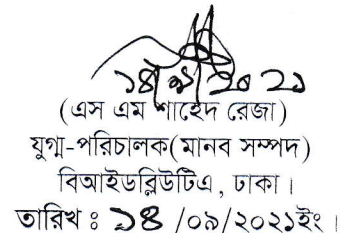 ১৪/০৯/২০২১
(এস এম শাহেদ রেজা)
যুগ্ম-পরিচালক(মানব সম্পদ)
বিআইডব্লিউটিএ, ঢাকা।
তারিখ ঃ ১৪ /০৯/২০২১ইং।